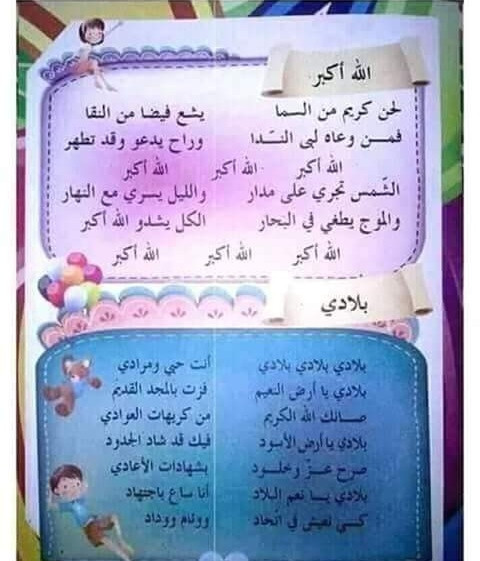 الله أكبر
لحن كريم من السما يشع فيضا من النقا
فمـن وعاه لبى النّدا وراح يدعو وقد تطهر
الله أكبر الله أكبر الله أكبر
الشّمس تجري على مدار والليل يسري مع النهار
والموج يطغي في البحار الكل يشدو الله أكبر
الله أكبر الله أكبر الله أكبر
بلادي
بلادي بلادي بلادي أنت حبي ومرادي
بلادي يا أرض النعيم فزت بالمجد القديم
صـانك الله الكريم من كريهات العوادي
بلادي يا أرض الأسود فيك قد شاد الجدود
صرح عـز وخلـود بشهادات الأعادي
بلادي يـا نعم البلاد أنا ساع باجتهاد
كـي نعيش في اتحاد ووئام ووداد